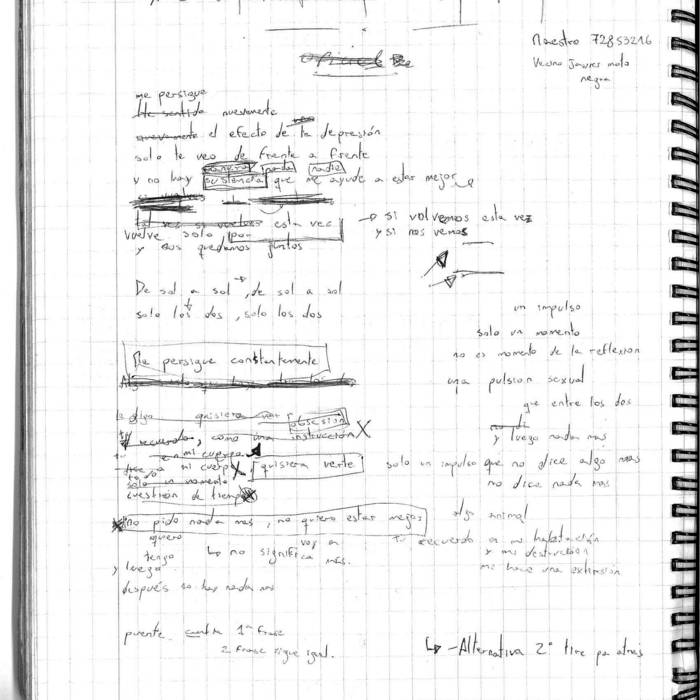 Maestro 72853216
Vecino Javier mota
negra
me persigue
He sentido nuevamente
nuevamente el efecto de la depresión
solo te veo de frente a frente
manera nada nadie
y no hay sustancia que me ayude a estar mejor
tal vez si vuelves esta vez
→ si volvemos esta vez
vuelve solo por
y si nos vemos
y nos quedamos juntos
De sol a sol, de sol a sol
solo los dos, solo los dos
un impulso
solo un momento
no es momento de la reflexion
Me persigue constantemente
una pulsion sexual
que entre los dos
algo quisiera ver
obsesion
y luego nada mas
recuerdo, como una instrucción X
en mi cuerpo
a mi cuerpo X quisiera verte
solo un impulso que no dice algo mas
solo un momento
no dice nada mas
cuestión de tiempo
No pido nada mas, no quiero estar mejor
algo animal
quiero
voy a
tu recuerdo a mi habitación
tengo
↳ no significa más.
y mi destrucción
y luego
me hace una extensión
después no hay nada mas
puente 1ª Frase
2 Frase sigue igual.
↳ - Alternativa 2° tire pa atrás